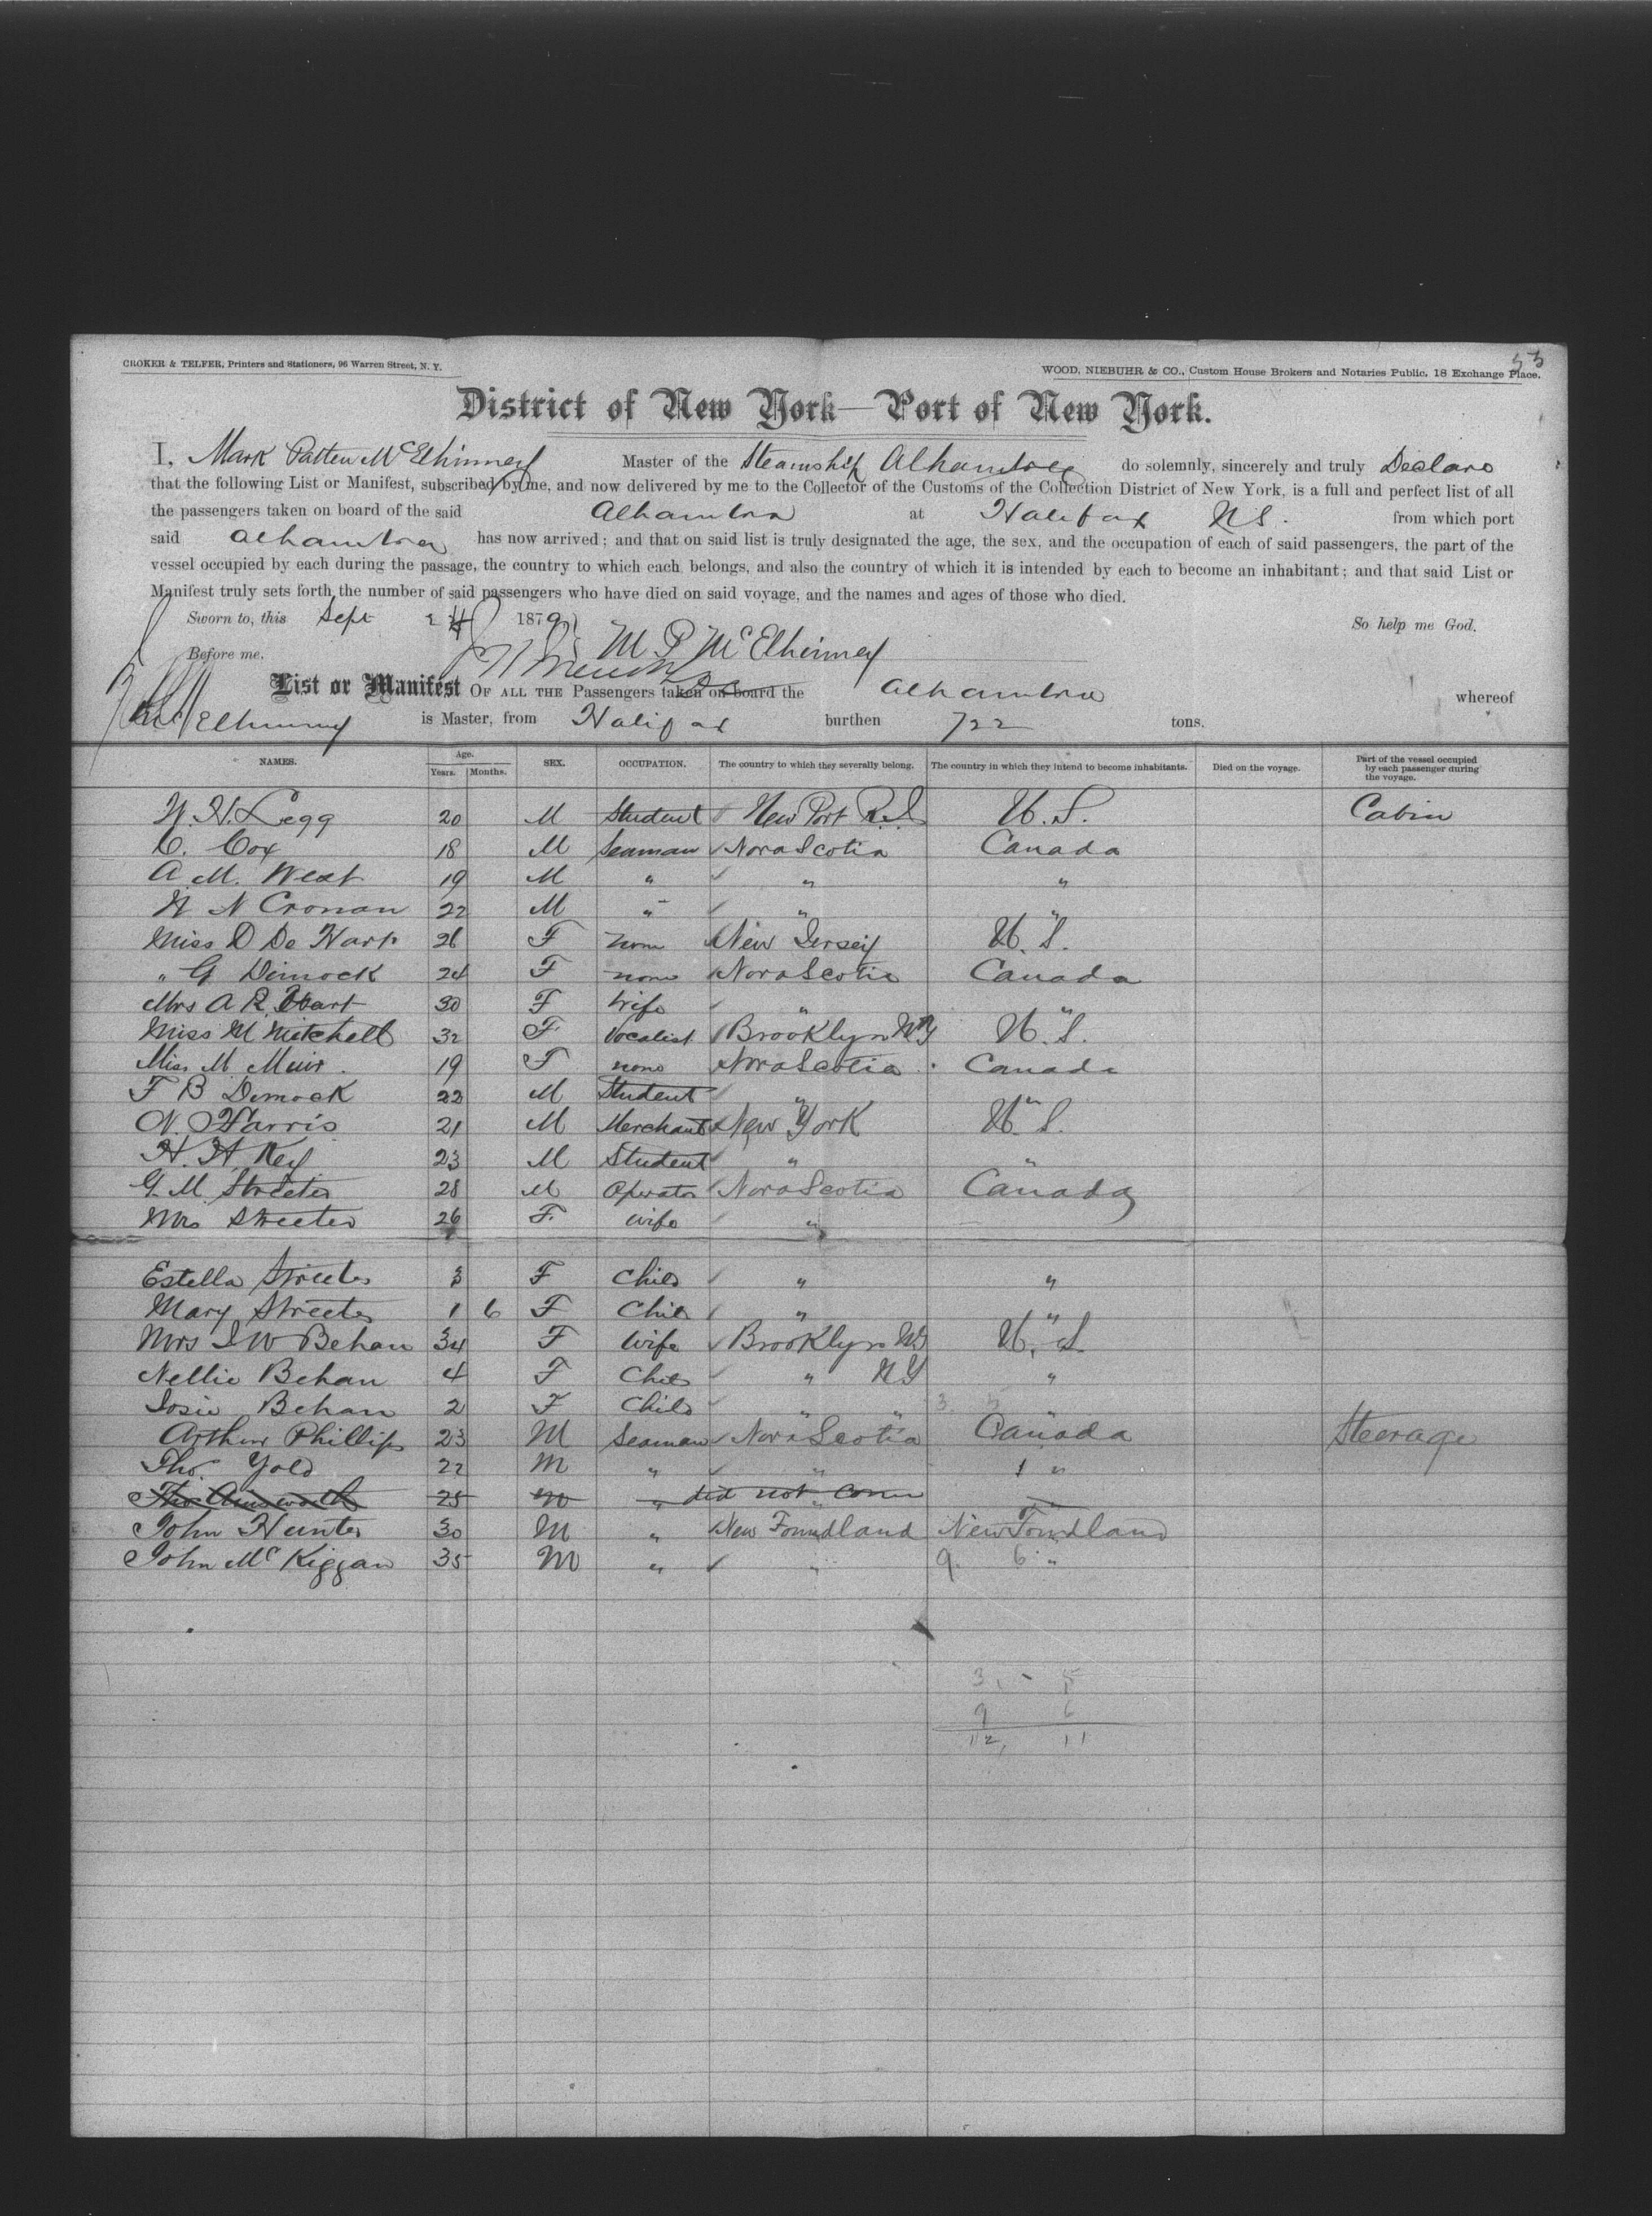 53
CROKER & TELFER, Printers and Stationers, 96 Warren Street, N. Y.
WOOD, NIEBUHR & CO., Custom House Brokers and Notaries Public, 18 Exchange Place.
District of New York—Port of New York.
I, Mark Patten McElhinney Master of the Steamship Alhambra do solemnly, sincerely and truly Declare
that the following List or Manifest, subscribed by me, and now delivered by me to the Collector of the Customs of the Collection District of New York, is a full and perfect list of all
the passengers taken on board of the said Alhambra at Halifax NS. from which port
said Alhambra has now arrived; and that on said list is truly designated the age, the sex, and the occupation of each of said passengers, the part of the
vessel occupied by each during the passage, the country to which each belongs, and also the country of which it is intended by each to become an inhabitant; and that said List or
Manifest truly sets forth the number of said passengers who have died on said voyage, and the names and ages of those who died.
Sworn to, this Sept 24 1879 So help me God.
Before me. M P McElhinney
List or Manifest OF ALL THE Passengers taken on board the Alhambra whereof
McElhinney is Master, from Halifax burthen 722 tons.
NAMES. Age. Years. Months. SEX. OCCUPATION. The country to which they severally belong. The country in which they intend to become inhabitants. Died on the voyage. Part of the vessel occupied by each passenger during the voyage.
W. H. Legg 20 M Student New Port R.I. U.S. Cabin
C. Cox 18 M Seaman Nova Scotia Canada
A. M. West 19 M " " "
W N Cronan 22 M " " "
Miss D De Hart 26 F none New Jersey U.S.
" G Dimock 24 F none Nova Scotia Canada
Mrs A R Hart 30 F Wife " "
Miss M Mitchell 32 F Vocalist Brooklyn NY U.S.
Miss M Muir 19 F none Nova Scotia Canada
F B Dimock 22 M Student " "
N. Harris 21 M Merchant New York U.S.
H. H. Key 23 M Student " "
G. M. Streeter 28 M Operator Nova Scotia Canada
Mrs Streeter 26 F. wife "
Estella Streeter 3 F Child " "
Mary Streeter 1 6 F Child " "
Mrs J W Behan 34 F Wife Brooklyn NY U.S.
Nellie Behan 4 F Child " NY "
Josie Behan 2 F Child " " 3. 5 "
Arthur Phillips 23 M Seaman Nova Scotia Canada Steerage
Tho. Yold 22 M " " "
Tho Ainsworth 25 M " did not come
John Hunter 30 M " New Foundland New Foundland
John McKiggan 35 M " " 9. 6 "
3, - 5
9 6
12, 11